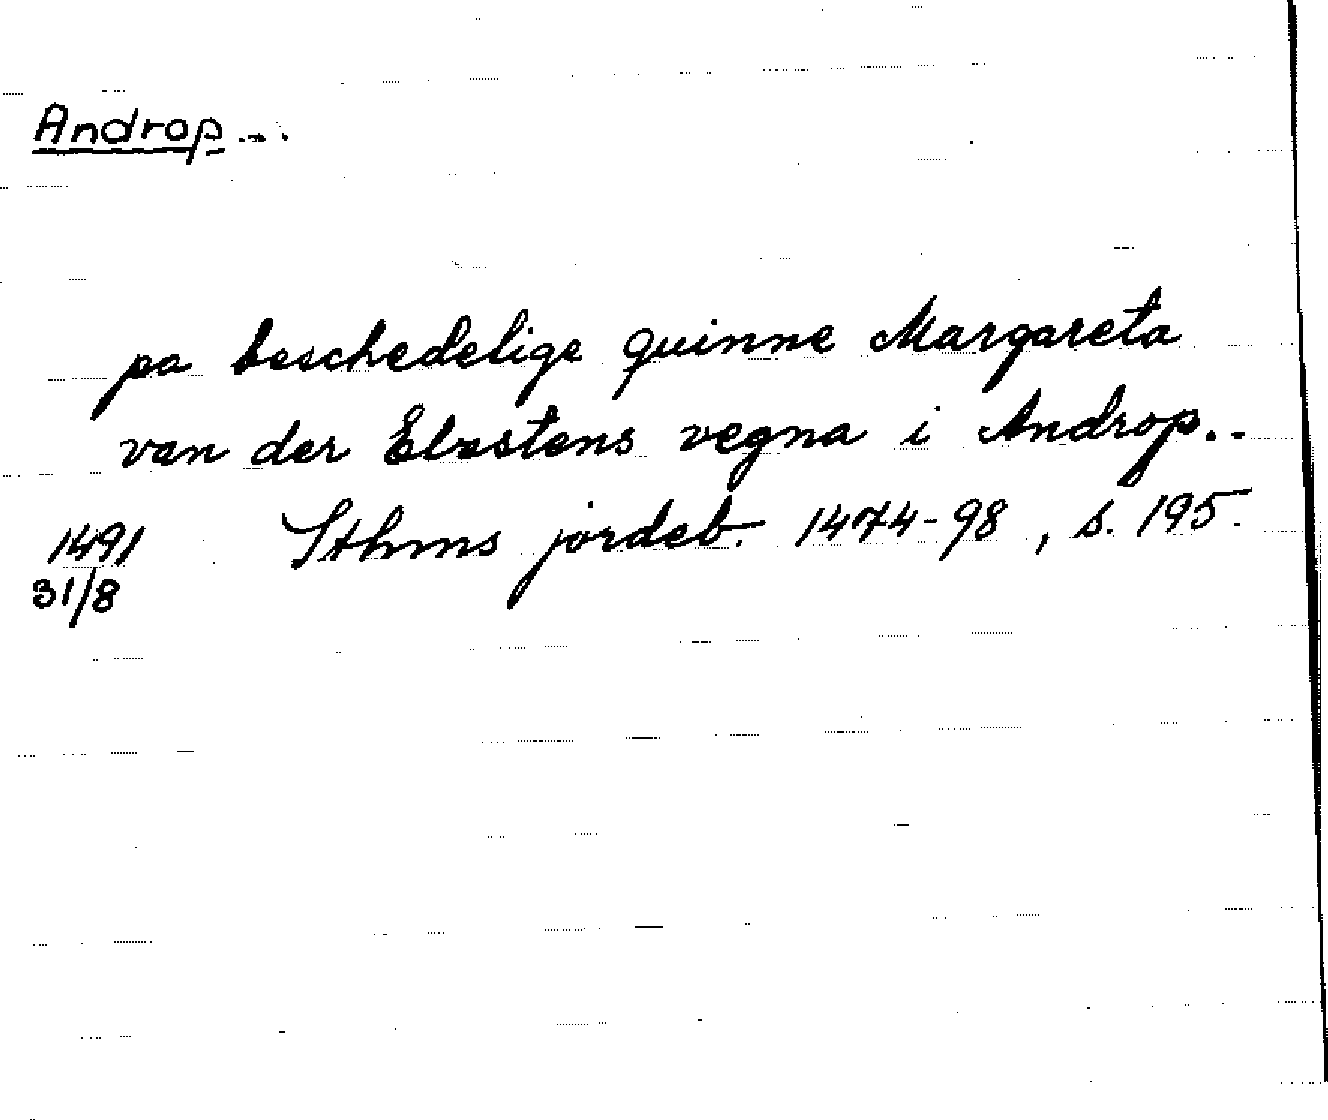 Androp...
pa beschedelige quinne Margareta
van der Elvstens vegna i Androp..
1491 Sthms jordeb. 1474-98, s. 195.
31/8